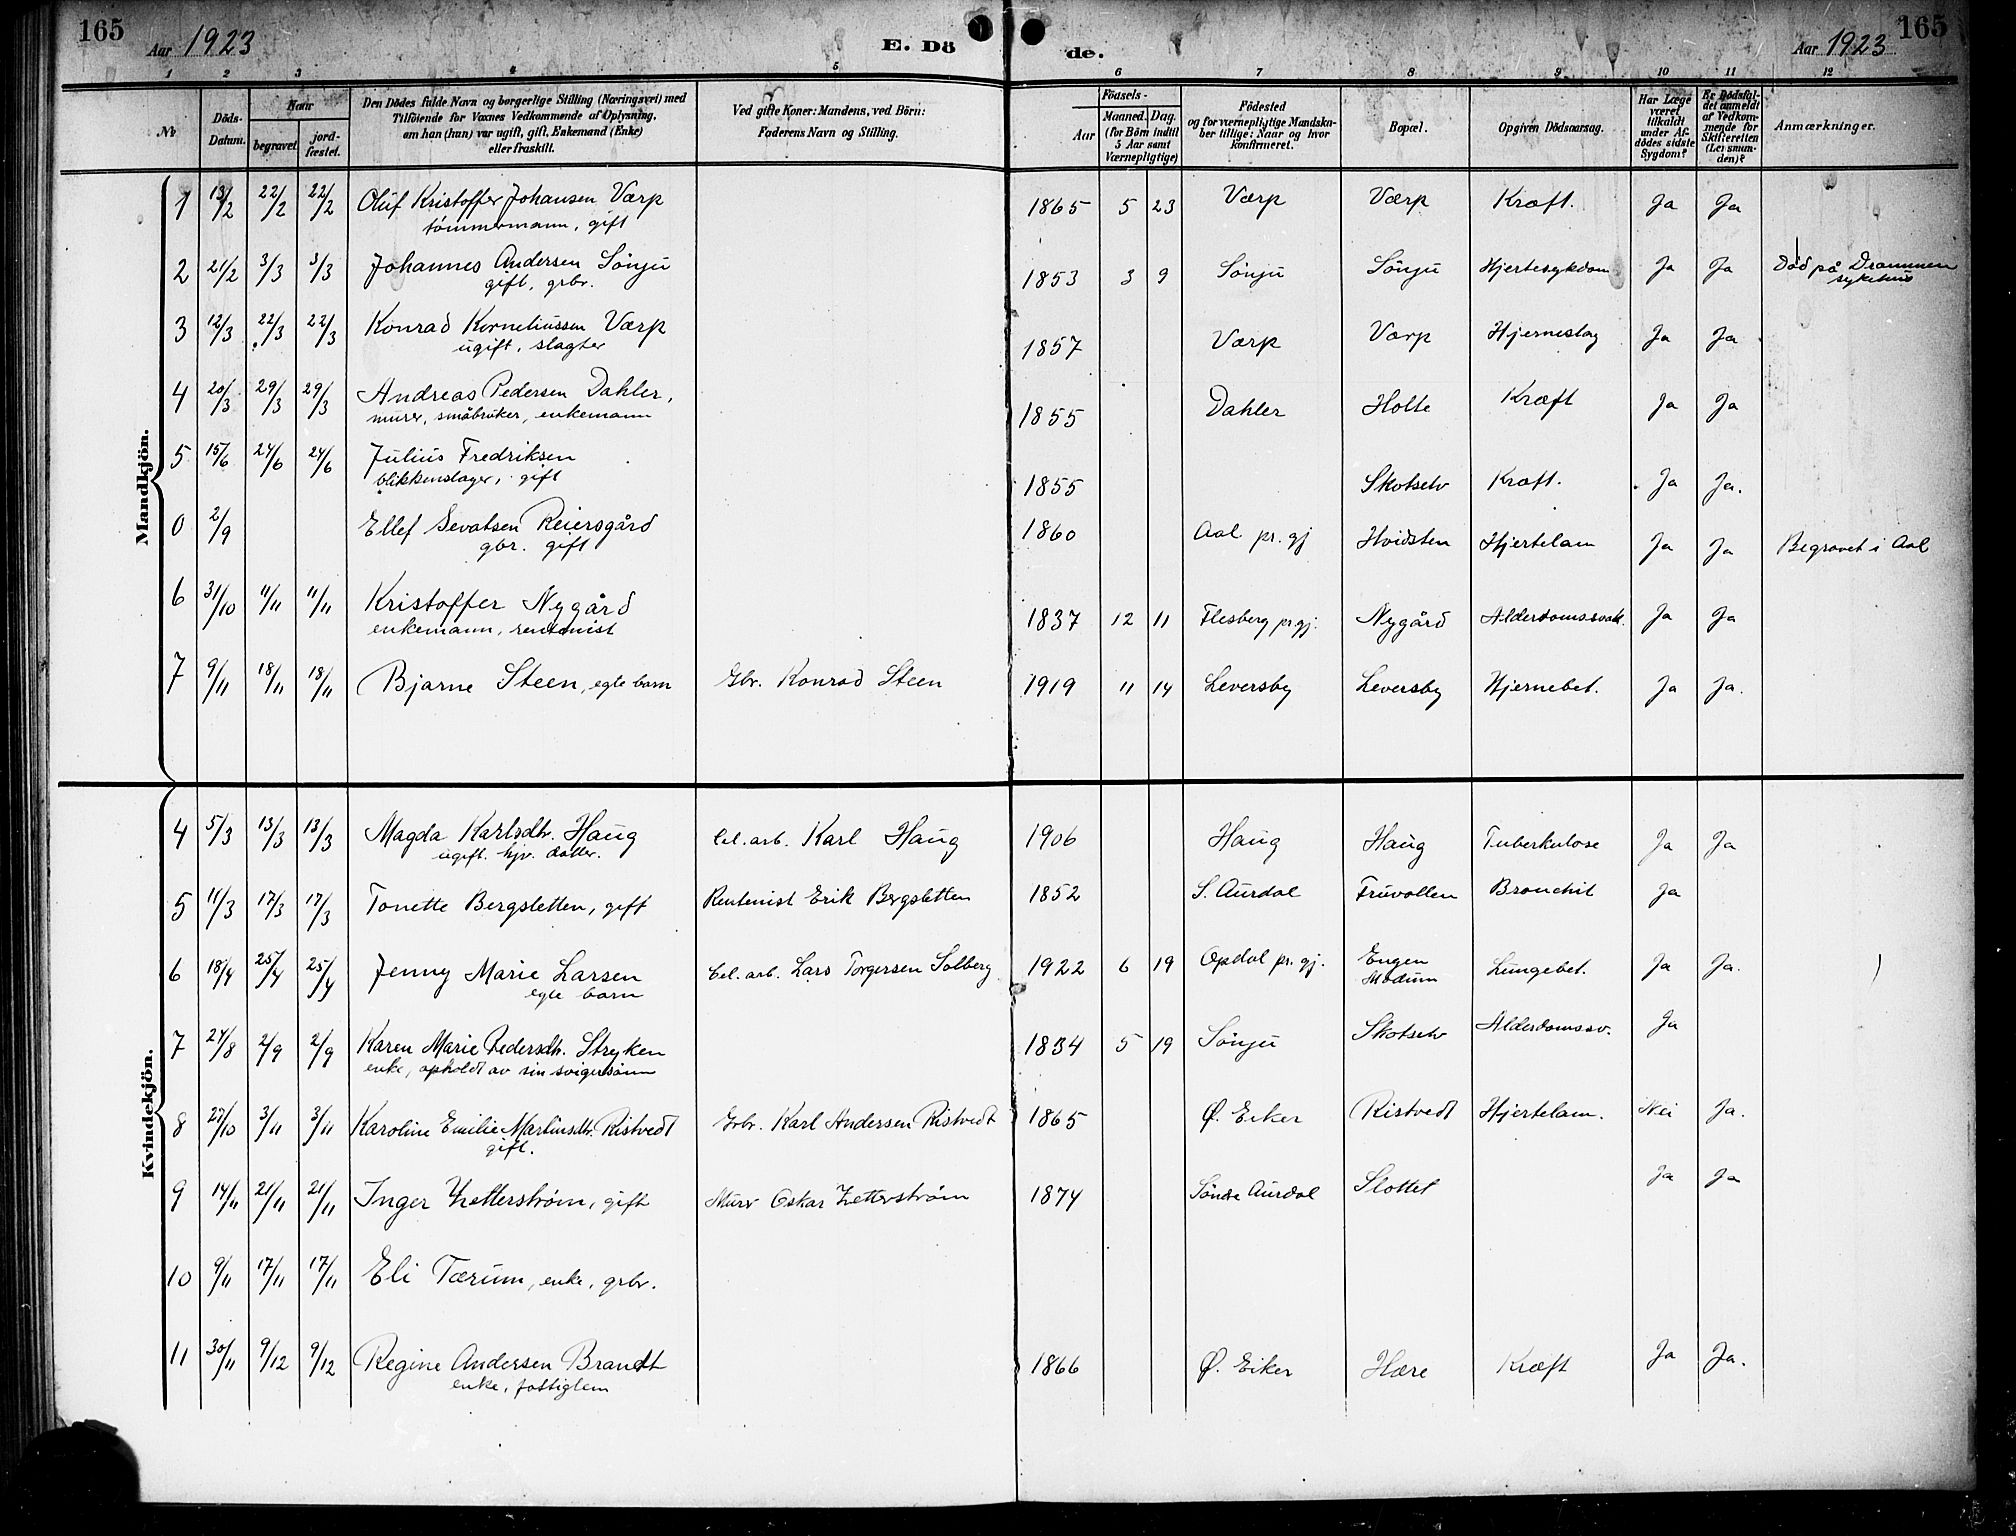 165
Aar 1923
E. Dö
de.
Aar 1923
165
1 2 3 4 5 6 7 8 9 10 11 12
№
Döds-
Datum.
Naar
begravet.
jord-
fæstet.
Den Dödes fulde Navn og borgerlige Stilling (Næringsvei) med
Tilföiende for Voxnes Vedkommende af Oplysning,
om han (hun) var ugift, gift, Enkemand (Enke)
eller fraskilt.
Ved gifte Koner: Mandens, ved Börn:
Faderens Navn og Stilling.
Födsels-
Aar
Maaned. Dag.
(for Börn indtil
5 Aar samt
Værnepligtige)
Födested
og for værnepligtige Mandskaber tillige: Naar og hvor
konfirmeret.
Bopæl.
Opgiven Dödsaarsag.
Har Læge
været
tilkaldt
under Afdödes sidste
Sygdom?
Er Dödsfaldet anmeldt
af Vedkommende for
Skifteretten
(Lensmanden)?
Anmærkninger.
Mandkjön.
1 13/2 22/2 22/2 Oluf Kristoffer Johansen Værp 1865 5 23 Værp Værp Kræft. Ja Ja
tömmermann, gift
2 21/2 3/3 3/3 Johannes Andersen Sönju 1853 3 9 Sönju Sönju Hjertesykdom Ja Ja Död på Drammen
gift, grbr. sykehus
3 12/3 22/3 22/3 Konrad Korneliussen Værp 1857 Værp Værp Hjerneslag Ja Ja
ugift, slagter
4 20/3 29/3 29/3 Andreas Pedersen Dahler, 1855 Dahler Holte Kræft Ja Ja
murer, småbruker, enkemann
5 15/6 24/6 24/6 Julius Fredriksen 1855 Skotselv Kræft. Ja Ja.
blikkenslager, gift
0 2/9 Ellef Sevatsen Reiersgård 1860 Aal pr. gj Hvidsten Hjertelam Ja Ja Begravet i Aal
gbr. gift
6 31/10 11/11 11/11 Kristoffer Nygård 1837 12 11 Flesberg pr gj. Nygård Alderdomssvakh. Ja Ja
enkemann, rentenist
7 9/11 18/11 18/11 Bjarne Steen, egte barn Gbr. Konrad Steen 1919 11 14 Leversby Leversby Hjernebet. Ja Ja.
Kvindekjön.
4 5/3 13/3 13/3 Magda Karlsdtr. Haug Cel. arb. Karl Haug 1906 Haug Haug Tuberkulose Ja Ja
ugift. hjv. datter.
5 11/3 17/3 17/3 Tonette Bergsletten, gift Rentenist Erik Bergsletten 1852 S. Aurdal Fruvollen Bronchit Ja
6 18/4 25/4 25/4 Jenny Marie Larsen Cel. arb. Lars Torgersen Solberg 1922 6 19 Opdal pr. gj. Engen Lungebet. Ja Ja.
egte barn Modum
7 27/8 2/9 2/9 Karen Marie Pedersdtr. Stryken 1834 5 19 Sönju Skotselv Alderdomssv. Ja
enke, opholdt av sin svigersönn
8 27/10 3/11 3/11 Karoline Emilie Martinsdtr. Ristvedt Grbr. Karl Andersen Ristvedt 1865 Ø. Eiker Ristvedt Hjertelam. Nei Ja.
gift.
9 14/11 21/11 21/11 Inger Zetterström, gift Murer Oskar Zetterström 1874 Söndre Aurdal Slottet Ja Ja
10 9/11 17/11 17/11 Eli Tærum, enke, grbr.
11 30/11 9/12 9/12 Regine Andersen Brandt 1866 Ø. Eiker Hære Kræft Ja Ja.
enke, fattiglem